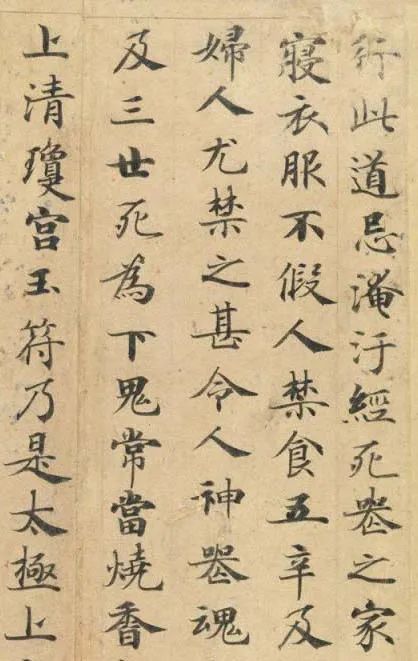 行此道忌淹汙經死䘮之家
寢衣服不假人禁食五辛及
婦人尤禁之甚令人神䘮魂
及三世死為下鬼常當燒香
上清瓊宮玉符乃是太極上